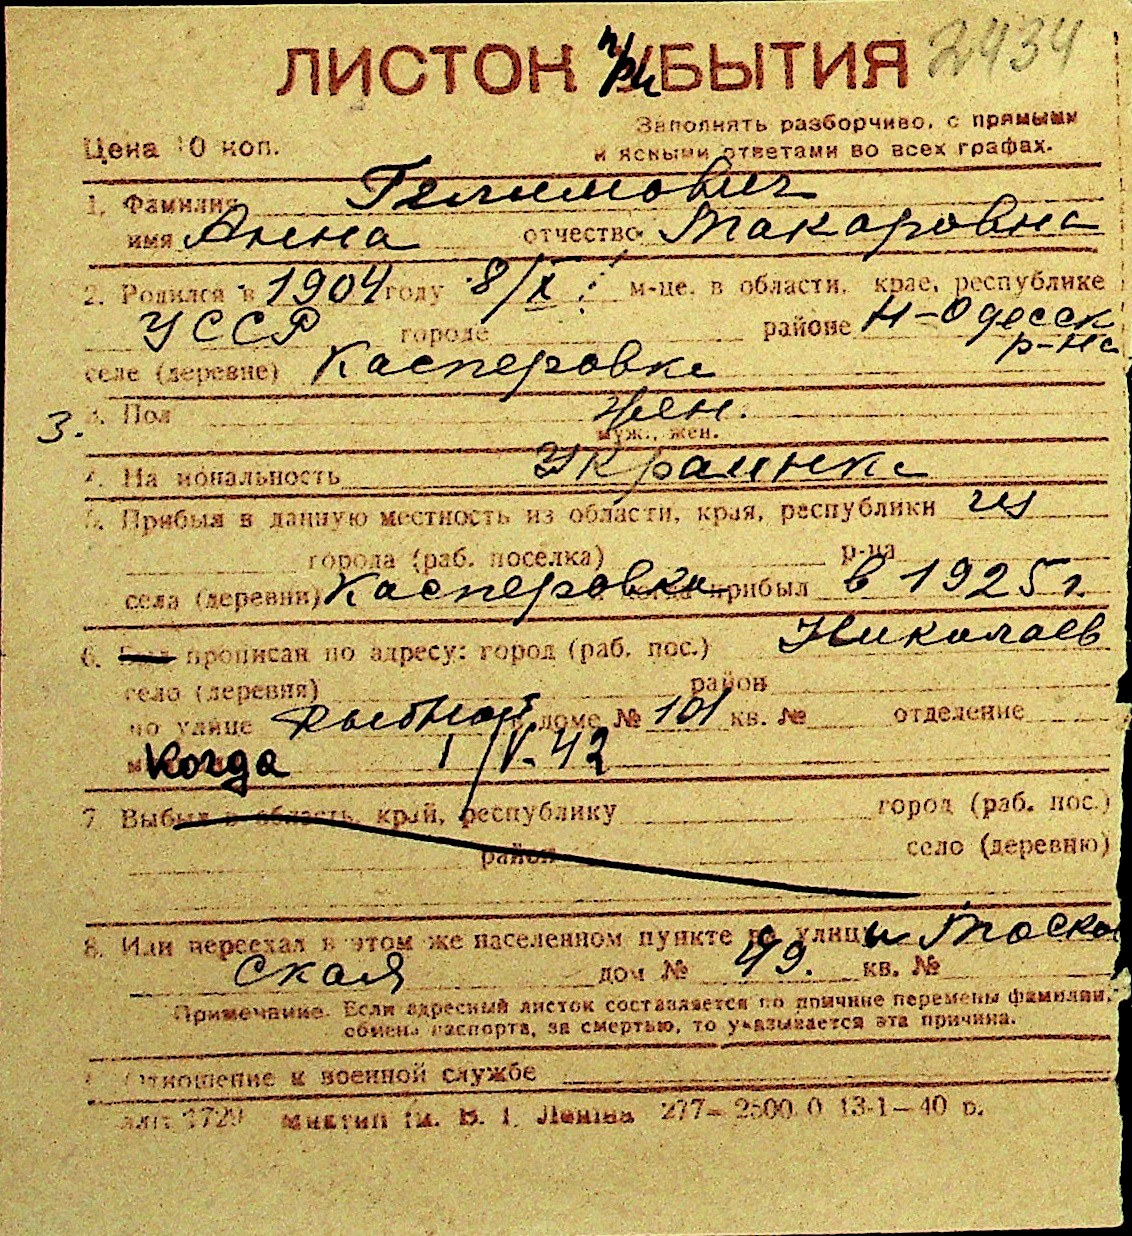 2434
ЛИСТОК при УБЫТИЯ
Цена 10 коп.
Заполнять разборчиво, с прямыми
и ясными ответами во всех графах.
1. Фамилия
имя Анна отчество Макаровна
2. Родился в 1904 году 8/X м-це, в области, крае, республике
УССР городе районе Н-Одесск
р-на
селе (деревне) Касперовке
3. 3. Пол жен.
муж., жен.
4. Национальность Украинка
5. Прибыл в данную местность из области, края, республики из
города (раб. поселка) р-на
села (деревни) Касперовки когда прибыл в 1925 г.
6. Был прописан по адресу: город (раб. пос.) Николаев
село (деревня) район
по улице Рыбной в доме № 101 кв. № отделение
Когда 1/V-42
7. Выбыл в область, край, республику город (раб. пос.)
район село (деревню)
8. Или переехал в этом же населенном пункте по улицы Москов
ская дом № 49. кв. №
Примечание. Если адресный листок составляется по причине перемены фамилии,
обмена паспорта, за смертью, то указывается эта причина.
Отношение к военной службе
1729 им. В. И. Ленина 277—2500.0 13-1—40 р.